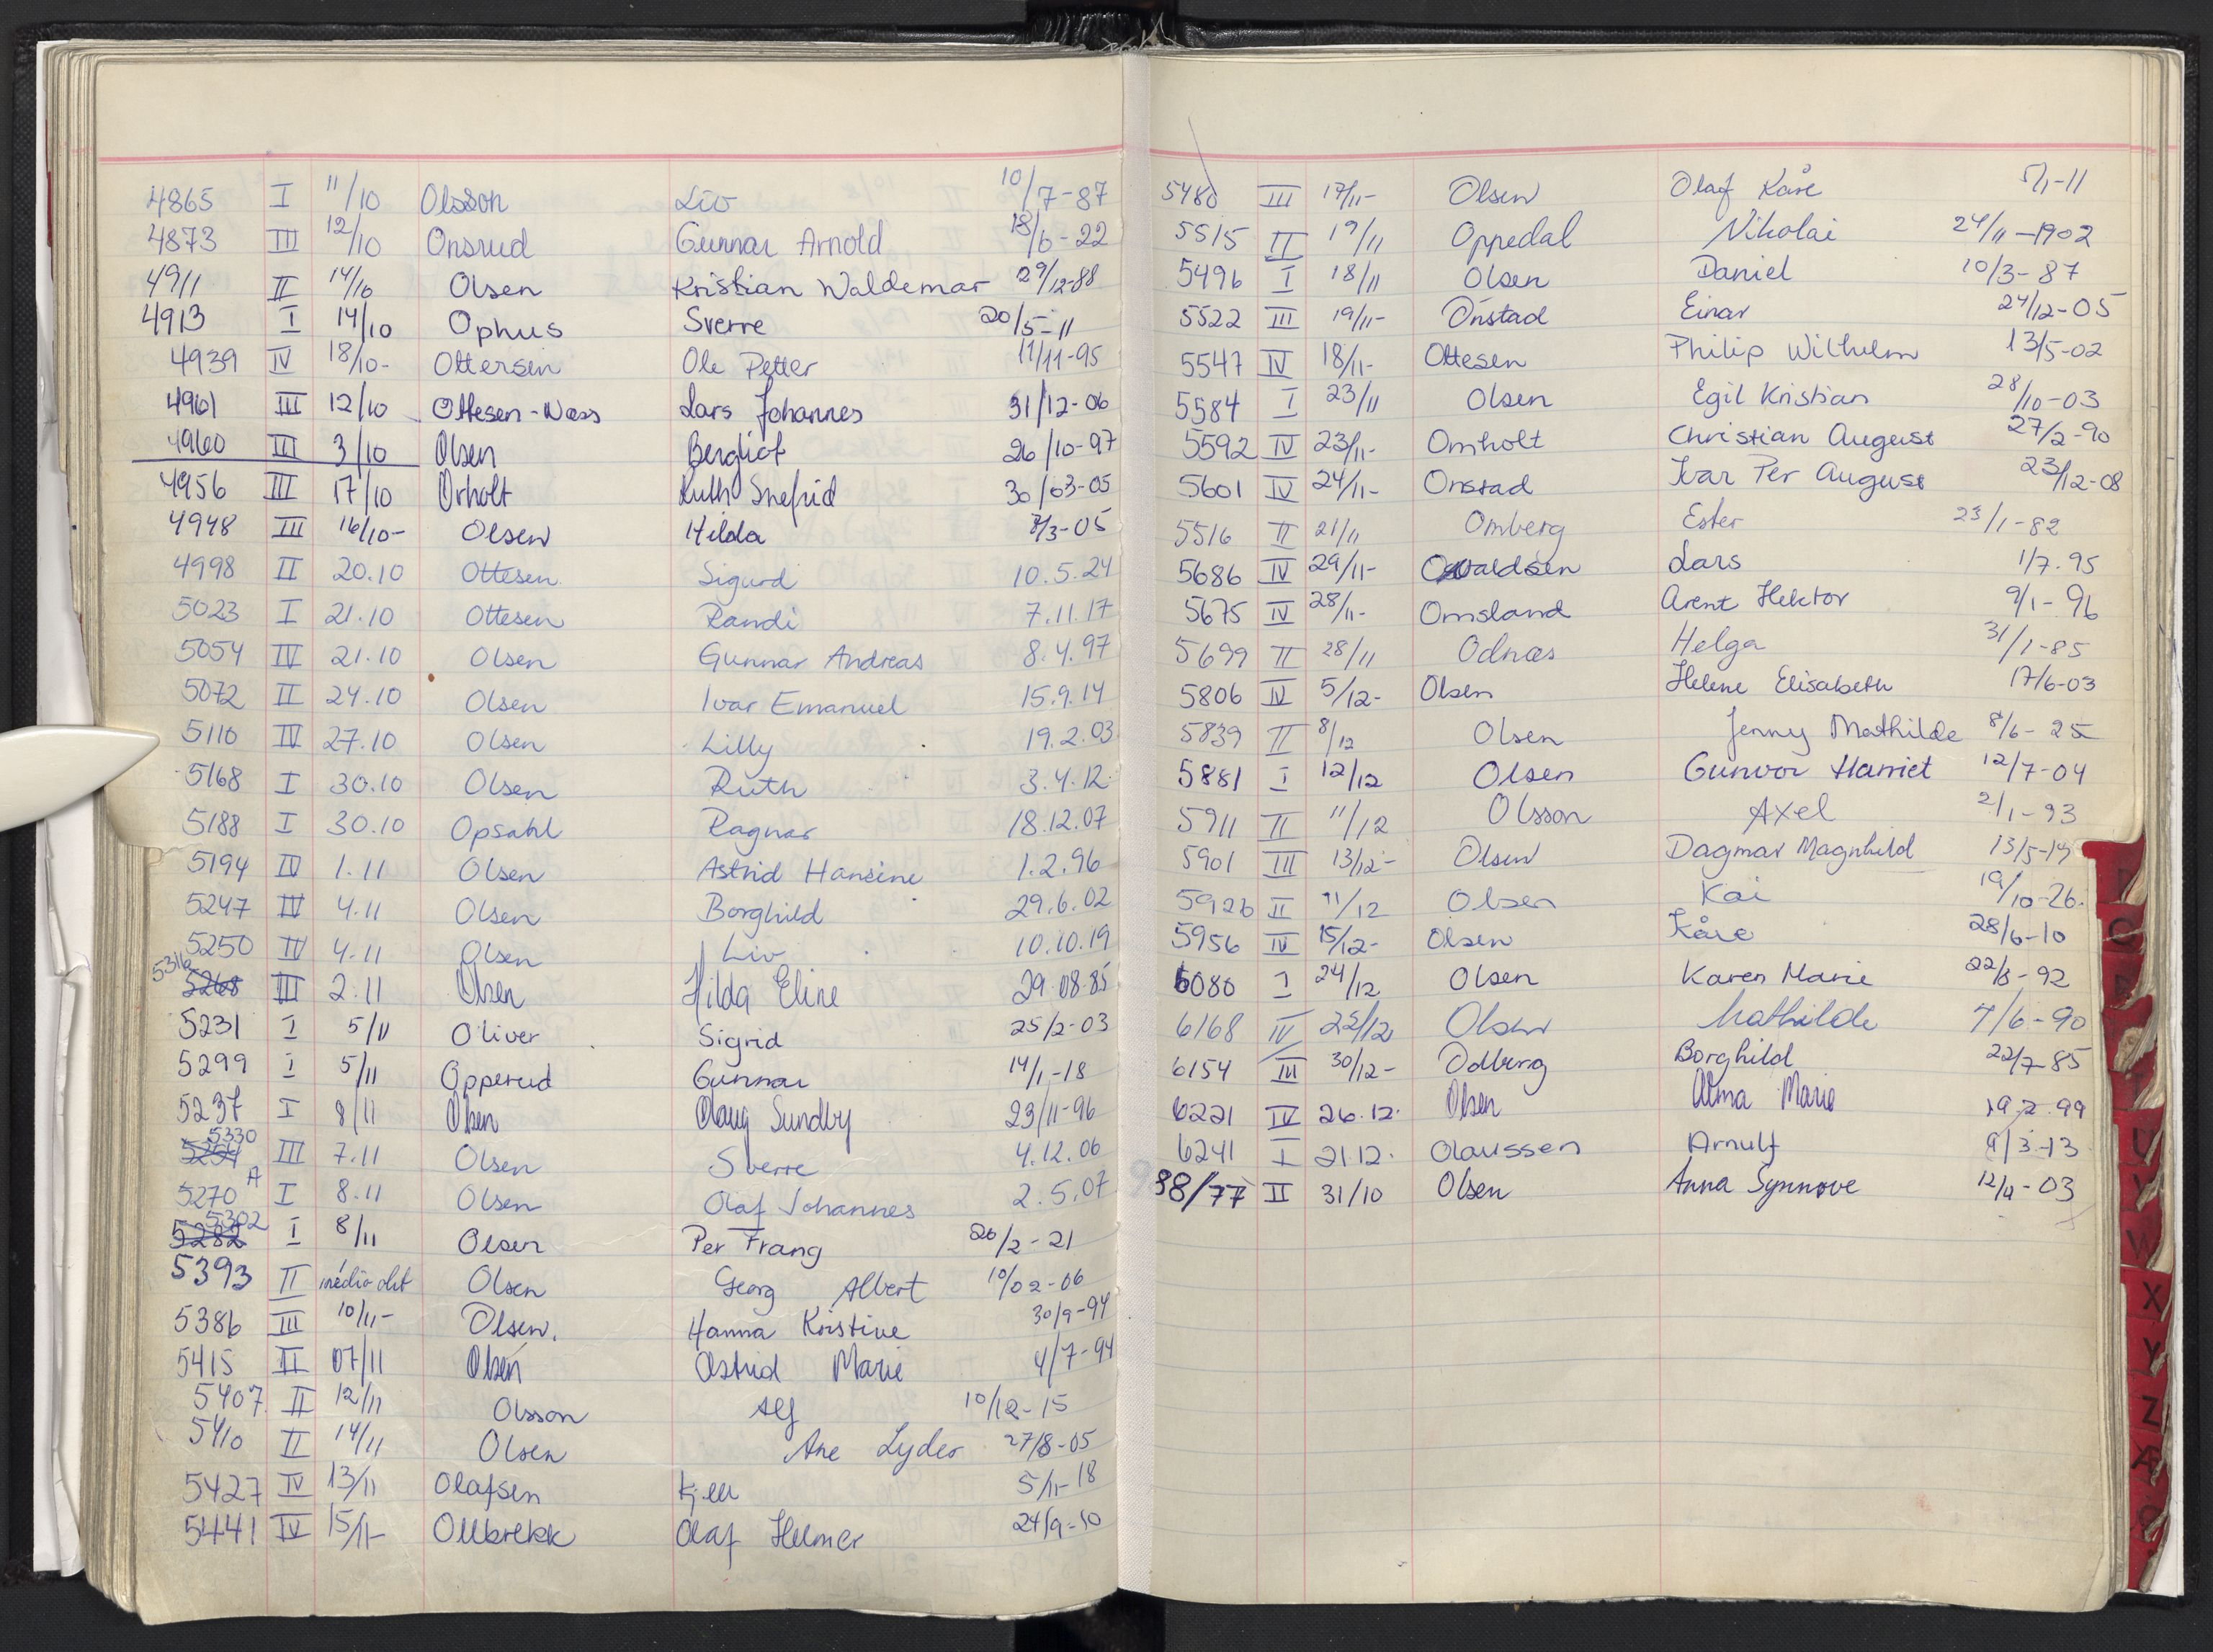 4865 I 11/10 Olsson Liv 10/7-87
4873 III 12/10 Onsrud Gunnar Arnold 18/6-22
4911 II 14/10 Olsen Kristian Waldemar 29/12-88
4913 I 14/10 Ophus Sverre 20/5-11
4939 IV 18/10- Ottersen Ole Petter 11/11-95
4961 III 12/10 Ottesen-Næss Lars Johannes 31/12-06
4960 III 3/10 Olsen Bergliot 26/10-97
4956 III 17/10 Orholt Ruth Snefrid 30/03-05
4948 III 16/10- Olsen Hilda 7/3-05
4998 II 20.10 Ottesen Sigurd 10.5.24
5023 I 21.10 Ottesen Randi 7.11.17
5054 IV 21.10 Olsen Gunnar Andreas 8.4.97
5072 II 24.10 Olsen Ivar Emanuel 15.9.14
5110 IV 27.10 Olsen Lilly 19.2.03
5168 I 30.10 Olsen Ruth 3.4.12
5188 I 30.10 Opsahl Ragnar 18.12.07
5194 IV 1.11 Olsen Astrid Hansine 1.2.96
5247 IV 4.11 Olsen Borghild 29.6.02
5250 IV 4.11 Olsen Liv 10.10.19
5316 5268 III 2.11 Olsen Hilda Eline 29.08.85
5231 I 5/11 Oliver Sigrid 25/2-03
5299 I 5/11 Opperud Gunnar 14/1-18
5237 I 8/11 Olsen Olaug Sundby 23/11-96
5330 III 7.11 Olsen Sverre 4.12.06
5270 A I 8.11 Olsen Olaf Johannes 2.5.07
5302 5282 I 8/11 Olsen Per Frang 26/2-21
5393 II medio okt Olsen Georg Albert 10/02-06
5386 III 10/11- Olsen. Hanna Kristine 30/9-94
5415 II 07/11 Olsen Astrid Marie 4/7-94
5407 II 12/11 Olsson Alf 10/12-15
5410 II 14/11 Olsen Ane Lyder 27/8-05
5427 IV 13/11 Olafsen Kjell 5/11-18
5441 IV 15/11- Ollbrekk Olaf Helmer 24/9-10
5480 III 17/11- Olsen Olaf Kåre 5/1-11
5515 II 19/11 Oppedal Nikolai 24/11-1902
5496 I 18/11 Olsen Daniel 10/3-87
5522 III 19/11- Onstad Einar 24/12-05
5547 IV 18/11- Ottesen Philip Wilhelm 13/5-02
5584 I 23/11 Olsen Egil Kristian 28/10-03
5592 IV 23/11- Omholt Christian August 27/2-90
5601 IV 24/11- Onstad Ivar Per August 23/12-08
5516 II 21/11 Omberg Ester 23/1-82
5686 IV 29/11- Osvaldsen Lars 1/7-95
5675 IV 28/11- Omsland Arent Hektor 9/1-96
5699 II 28/11 Odnæs Helga 31/1-85
5806 IV 5/12- Olsen Helene Elisabeth 17/6-03
5839 II 8/12 Olsen Jenny Mathilde 8/6-25
5881 I 12/12 Olsen Gunvor Harriet 12/7-04
5911 II 11/12 Olsson Axel 2/1-93
5901 III 13/12- Olsen Dagmar Magnhild 13/5-14
5926 II 11/12 Olsen Kai 19/10-26.
5956 IV 15/12- Olsen Kåre 28/6-10
6080 I 24/12 Olsen Karen Marie 22/3-92
6168 IV 25/12 Olsen Mathilde 7/6-90
6154 III 30/12- Odberg Borghild 22/7-85
6221 IV 26.12. Olsen Alma Marie 19.2.99
6241 I 21.12. Olaussen Arnulf 9/3-13
88/77 II 31/10 Olsen Anna Synnøve 12/4-03
X
Y
Z
Æ
Ø